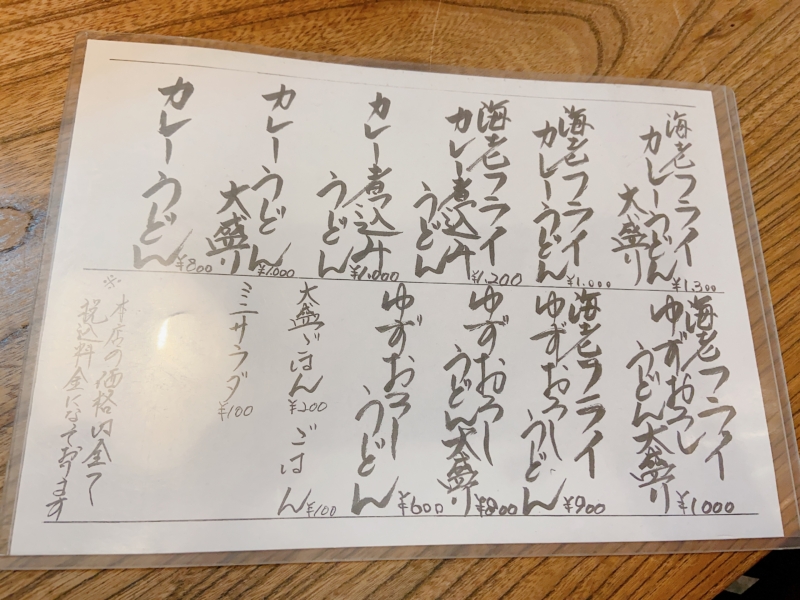 海老フライ
カレーうどん
大盛り
¥1,300
海老フライ
カレーうどん
¥1,000
海老フライ
カレー煮込み
うどん
¥1,200
カレー煮込み
うどん
¥1,000
カレーうどん
大盛り
¥1,000
カレーうどん
¥800
海老フライ
ゆずおろし
うどん大盛り
¥1000
海老フライ
ゆずおろし
うどん
¥900
ゆずおろし
うどん大盛り
¥800
ゆずおろし
うどん
¥600
大盛ごはん
¥200
ごはん
¥100
ミニサラダ
¥100
※本店の価格は全て
税込料金になっております